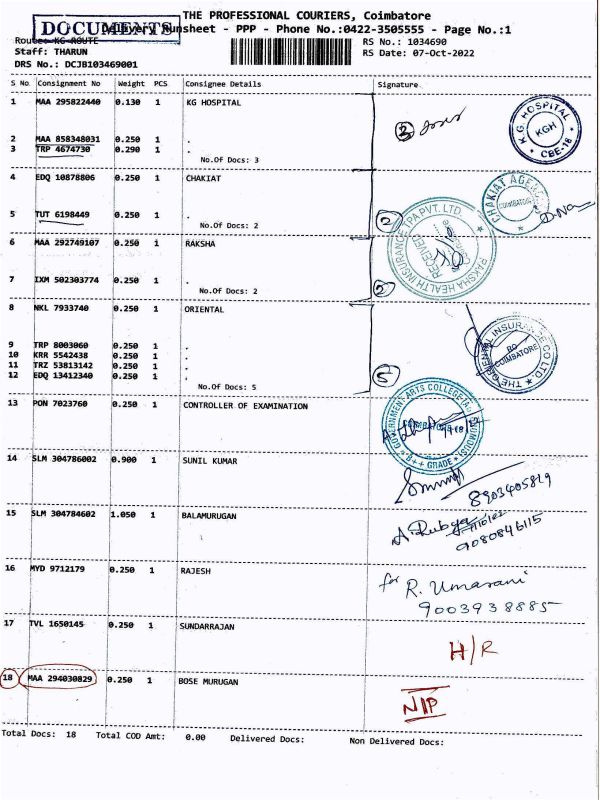 THE PROFESSIONAL COURIERS, Coimbatore
DOCUMENTS
Delivery Runsheet - PPP - Phone No.:0422-3505555 - Page No.:1
Route: KG ROUTE
RS No. : 1034690
Staff: THARUN
RS Date: 07-Oct-2022
DRS No.: DCJB103469001
S No Consignment No Weight PCS Consignee Details Signature
1 MAA 295822440 0.130 1 KG HOSPITAL
K.G. HOSPITAL KGH CBE-18
3
2 MAA 858348031 0.250 1 .
3 TRP 4674730 0.290 1 .
No.Of Docs: 3
4 EDQ 10878806 0.250 1 CHAKIAT
CHAKIAT AGEN COIMBATORE
5 TUT 6198449 0.250 1 .
No.Of Docs: 2
2
6 MAA 292749107 0.250 1 RAKSHA
RAKSHA HEALTH INSURANCE TPA PVT. LTD.
RECEIVED
7 IXM 502303774 0.250 1 .
No.Of Docs: 2
8 NKL 7933740 0.250 1 ORIENTAL
THE ORIENTAL INSURANCE CO LTD. COIMBATORE
9 TRP 8003060 0.250 1 .
10 KRR 5542438 0.250 1 .
11 TRZ 53813142 0.250 1 .
12 EDQ 13412340 0.250 1 .
No.Of Docs: 5
5
13 PON 7023760 0.250 1 CONTROLLER OF EXAMINATION
GOVERNMENT ARTS COLLEGE COIMBATORE B++ GRADE
14 SLM 304786002 0.900 1 SUNIL KUMAR
8903405819
15 SLM 304784602 1.050 1 BALAMURUGAN
A. Rubya
9080846115
16 MYD 9712179 0.250 1 RAJESH
for R. Umarani
9003938885
17 TVL 1650145 0.250 1 SUNDARRAJAN
H/R
18 MAA 294030829 0.250 1 BOSE MURUGAN
NIP
Total Docs: 18 Total COD Amt: 0.00 Delivered Docs: Non Delivered Docs: